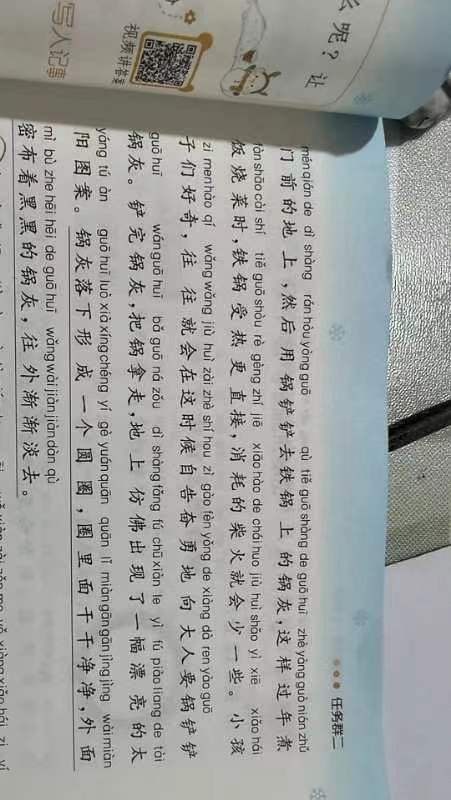 么呢？让
视频讲答案
写人记事
任务群二
mén qián de dì shàng rán hòu yòng guō qù tiě guō shàng de guō huī zhè yàng guò nián zhǔ
门前的地上，然后用锅铲铲去铁锅上的锅灰，这样过年煮
fàn shāo cài shí tiě guō shòu rè gèng zhí jiē xiāo hào de chái huo jiù huì shǎo yì xiē xiǎo hái
饭烧菜时，铁锅受热更直接，消耗的柴火就会少一些。小孩
zi men hào qí wǎng wǎng jiù huì zài zhè shí hou zì gào fèn yǒng de xiàng dà ren yào guō
子们好奇，往往就会在这时候自告奋勇地向大人要锅铲铲
guō huī wán guō huī bǎ guō ná zǒu dì shàng fǎng fú chū xiàn le yì fú piào liang de tài
锅灰。铲完锅灰，把锅拿走，地上仿佛出现了一幅漂亮的太
yáng tú àn guō huī luò xià xíng chéng yí gè yuán quān quān lǐ miàn gān gān jìng jìng wài miàn
阳图案。锅灰落下形成一个圆圈，圈里面干干净净，外面
mì bù zhe hēi hēi de guō huī wǎng wài jiàn jiàn dàn qù
密布着黑黑的锅灰，往外渐渐淡去。